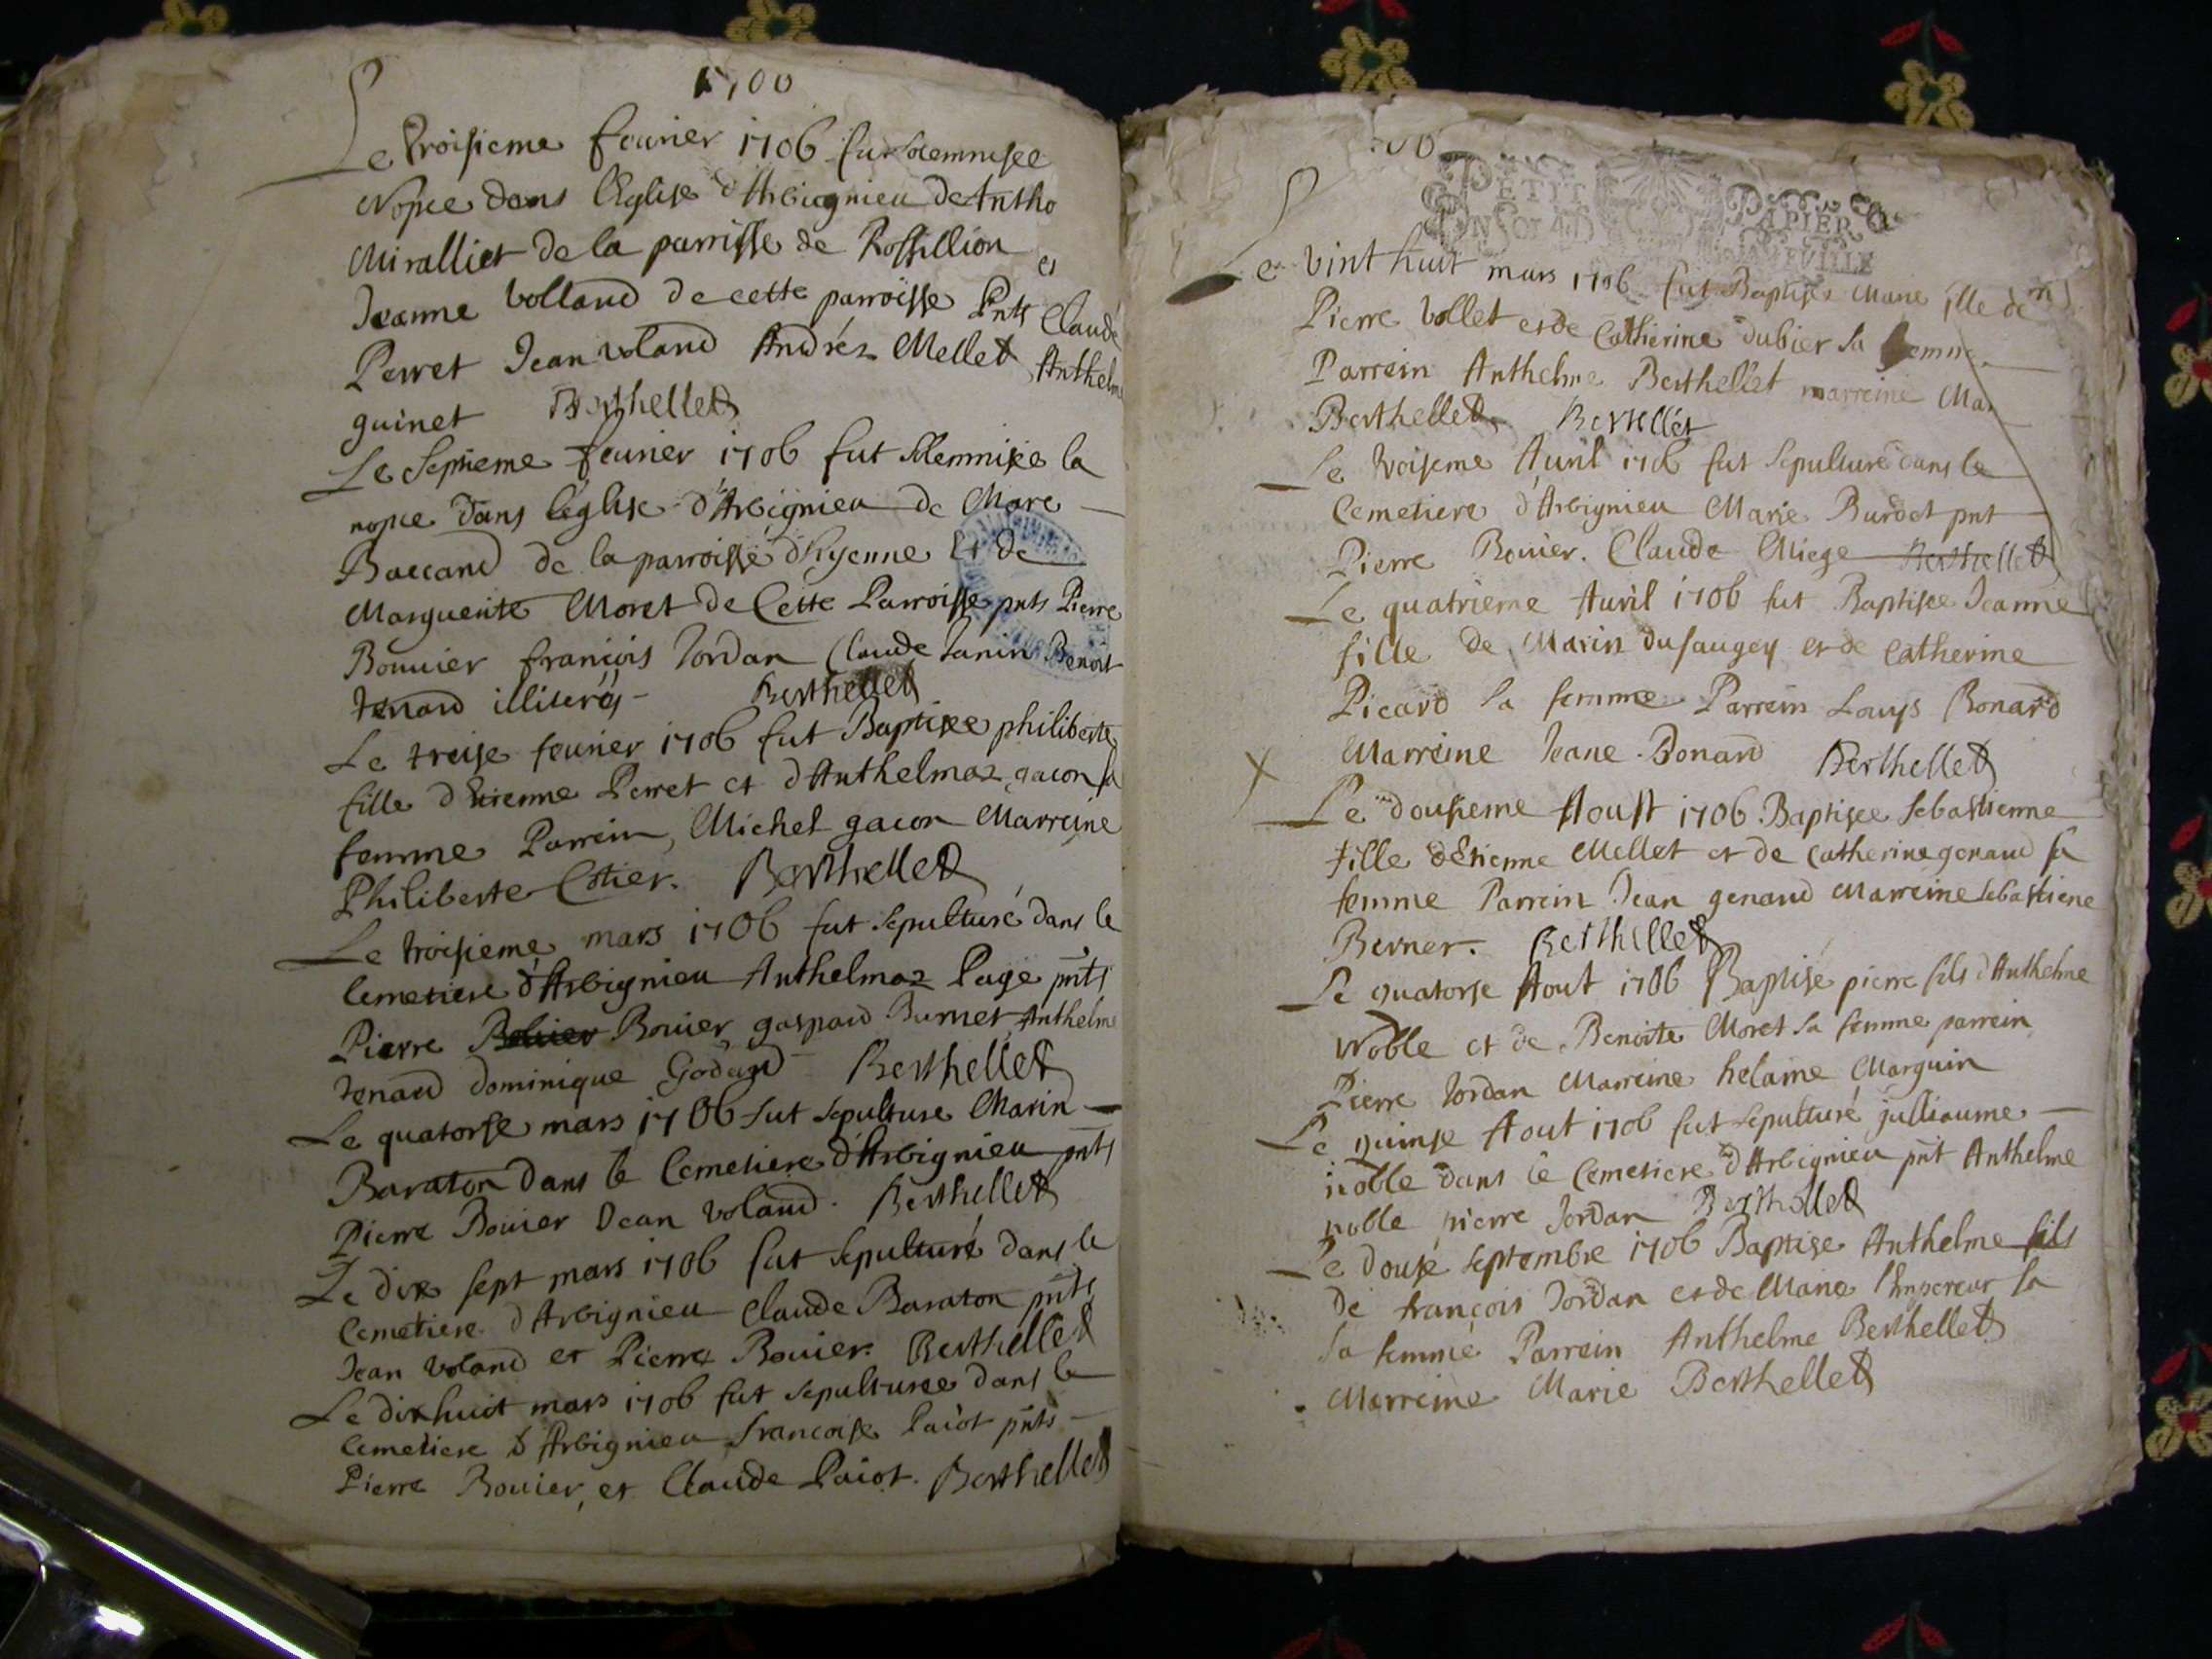 1700
Le troisieme feurier 1706 fut solemnisee
Nopce dans l'Eglise d'Arbignieu de Antho
Miralliet de la parrisse de Rossillion et
Jeanne Volland de cette parroisse Pnts Claude
Perret Jean voland Andréz Mellet Anthelme
guinet Berthellet
Le Septieme feurier 1706 fut solemnisée la
nopce dans l'eglise d'Arbignieu de Marc
Baccand de la parroisse d'hyenne Et de
Marguerite Moret de Cette Parroisse pnts Pierre
Bouuier françois Jordan Claude Janin Benoit
Tenand illiterés Berthellet
Le treise feurier 1706 fut Baptisee philiberte
fille d'Etienne Perret et d'Anthelmaz gacon sa
femme Parrein, Michel gacon Marreine
Philiberte Cotier. Berthellet
Le troisieme mars 1706 fut sepulturé dans le
Cemetiere d'Arbignieu Anthelmaz Page pnts
Pierre Bouier gaspard Burnet Anthelme
Tenand dominique Godard Berthellet
Le quatorse mars 1706 fut sepulture Marin
Baraton dans le Cemetiere d'Arbignieu pnts
Pierre Bouier Jean voland. Berthellet
Le dix sept mars 1706 fut sepulturé dans le
Cemetiere d'Arbignieu Claude Baraton pnts
Jean voland et Pierre Bouier. Berthellet
Le dixhuit mars 1706 fut sepulturee dans le
Cemetiere d'Arbignieu francoise Paiot pnts
Pierre Bouier, et Claude Paiot. Berthellet
PETIT PAPIER
Le vint huit mars 1706 fut Baptisée Marie fille de
Pierre Vollet et de Catherine dubier sa femme
Parrein Anthelme Berthellet marreine Mar
Berthellet Berthellet
Le troiseme Auril 1706 fut sepulturé dans le
Cemetiere d'Arbignieu Marie Burdet pnt
Pierre Bouier. Claude Miege Berthellet
Le quatrieme Auril 1706 fut Baptisee Jeanne
fille de Marin dusaugey et de Catherine
Picard sa femme Parrein Louys Bonard
Marreine Jeane Bonard Berthellet
Le dousieme Aoust 1706 Baptisee Sebastienne
fille d'Etienne Mellet et de Catherine genaud sa
femme Parrein Jean genaud Marreine Sebastiene
Berner. Berthellet
Le quatorse Aout 1706 Baptise pierre fils d'Anthelme
Noble et de Benoite Moret sa femme parrein
Pierre Jordan Marreine helaine Marguin
Le quinse Aout 1706 fut sepulturé julliaume
noble dans le Cemetiere d'Arbignieu pnt Anthelme
noble pierre Jordan Berthellet
Le douse septembre 1706 Baptise Anthelme fils
de françois Jordan et de Marie l'Empereur sa
sa femme Parrein Anthelme Berthellet
Marreine Marie Berthellet